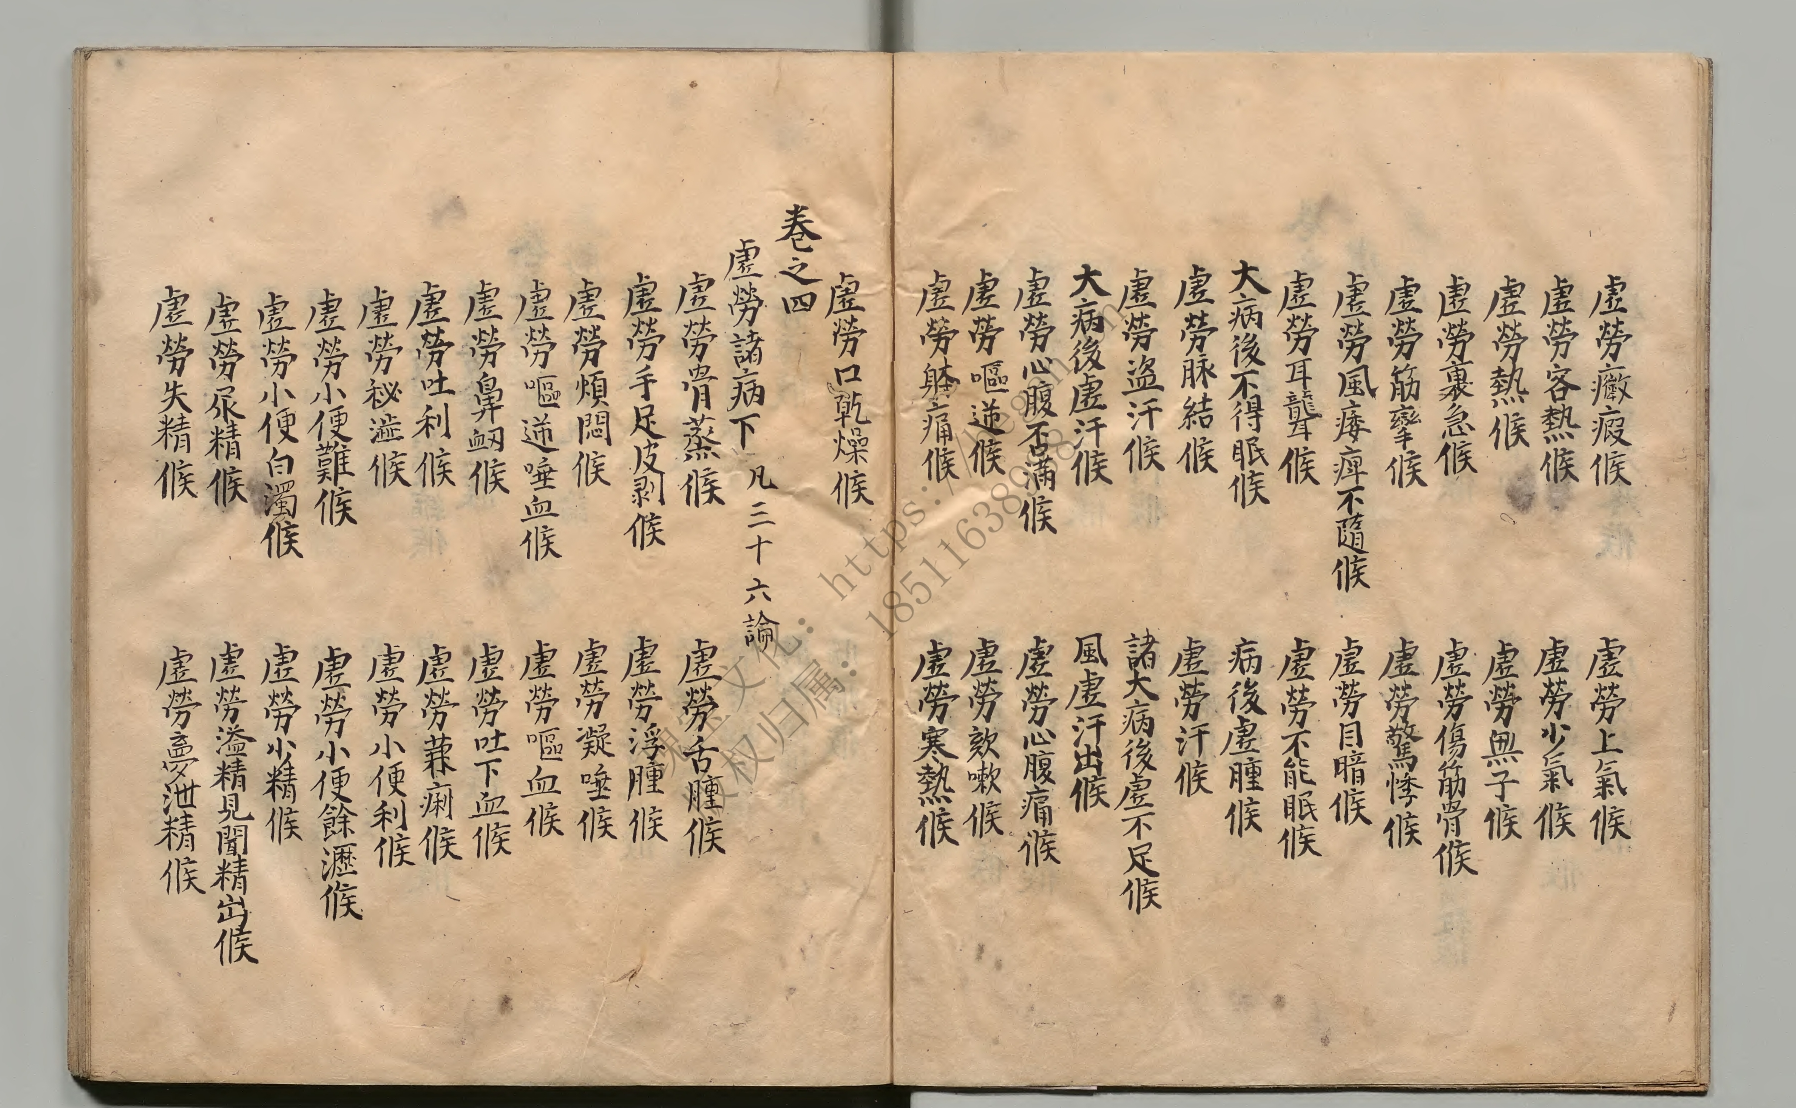 虚勞癥瘕候
虚勞上氣候
虚勞客熱候
虚勞少氣候
虚勞熱候
虚勞無子候
虚勞裏急候
虚勞傷筋骨候
虚勞筋攣候
虚勞驚悸候
虚勞風痿痺不隨候
虚勞目暗候
虚勞耳聾候
虚勞不能眠候
大病後不得眠候
病後虚腫候
虚勞脉結候
虚勞汗候
虚勞盜汗候
諸大病後虚不足候
大病後虚汗候
風虚汗出候
虚勞心腹否滿候
虚勞心腹痛候
虚勞嘔逆候
虚勞欬嗽候
虚勞躰痛候
虚勞寒熱候
虚勞口乾燥候
卷之四
虚勞諸病下 凡三十六論
虚勞骨蒸候
虚勞舌腫候
虚勞手足皮剥候
虚勞浮腫候
虚勞煩悶候
虚勞凝唾候
虚勞嘔逆唾血候
虚勞嘔血候
虚勞鼻衂候
虚勞吐下血候
虚勞吐利候
虚勞兼痢候
虚勞秘澁候
虚勞小便利候
虚勞小便難候
虚勞小便餘瀝候
虚勞小便白濁候
虚勞少精候
虚勞尿精候
虚勞溢精見聞精出候
虚勞失精候
虚勞夢泄精候
https://
18511638938